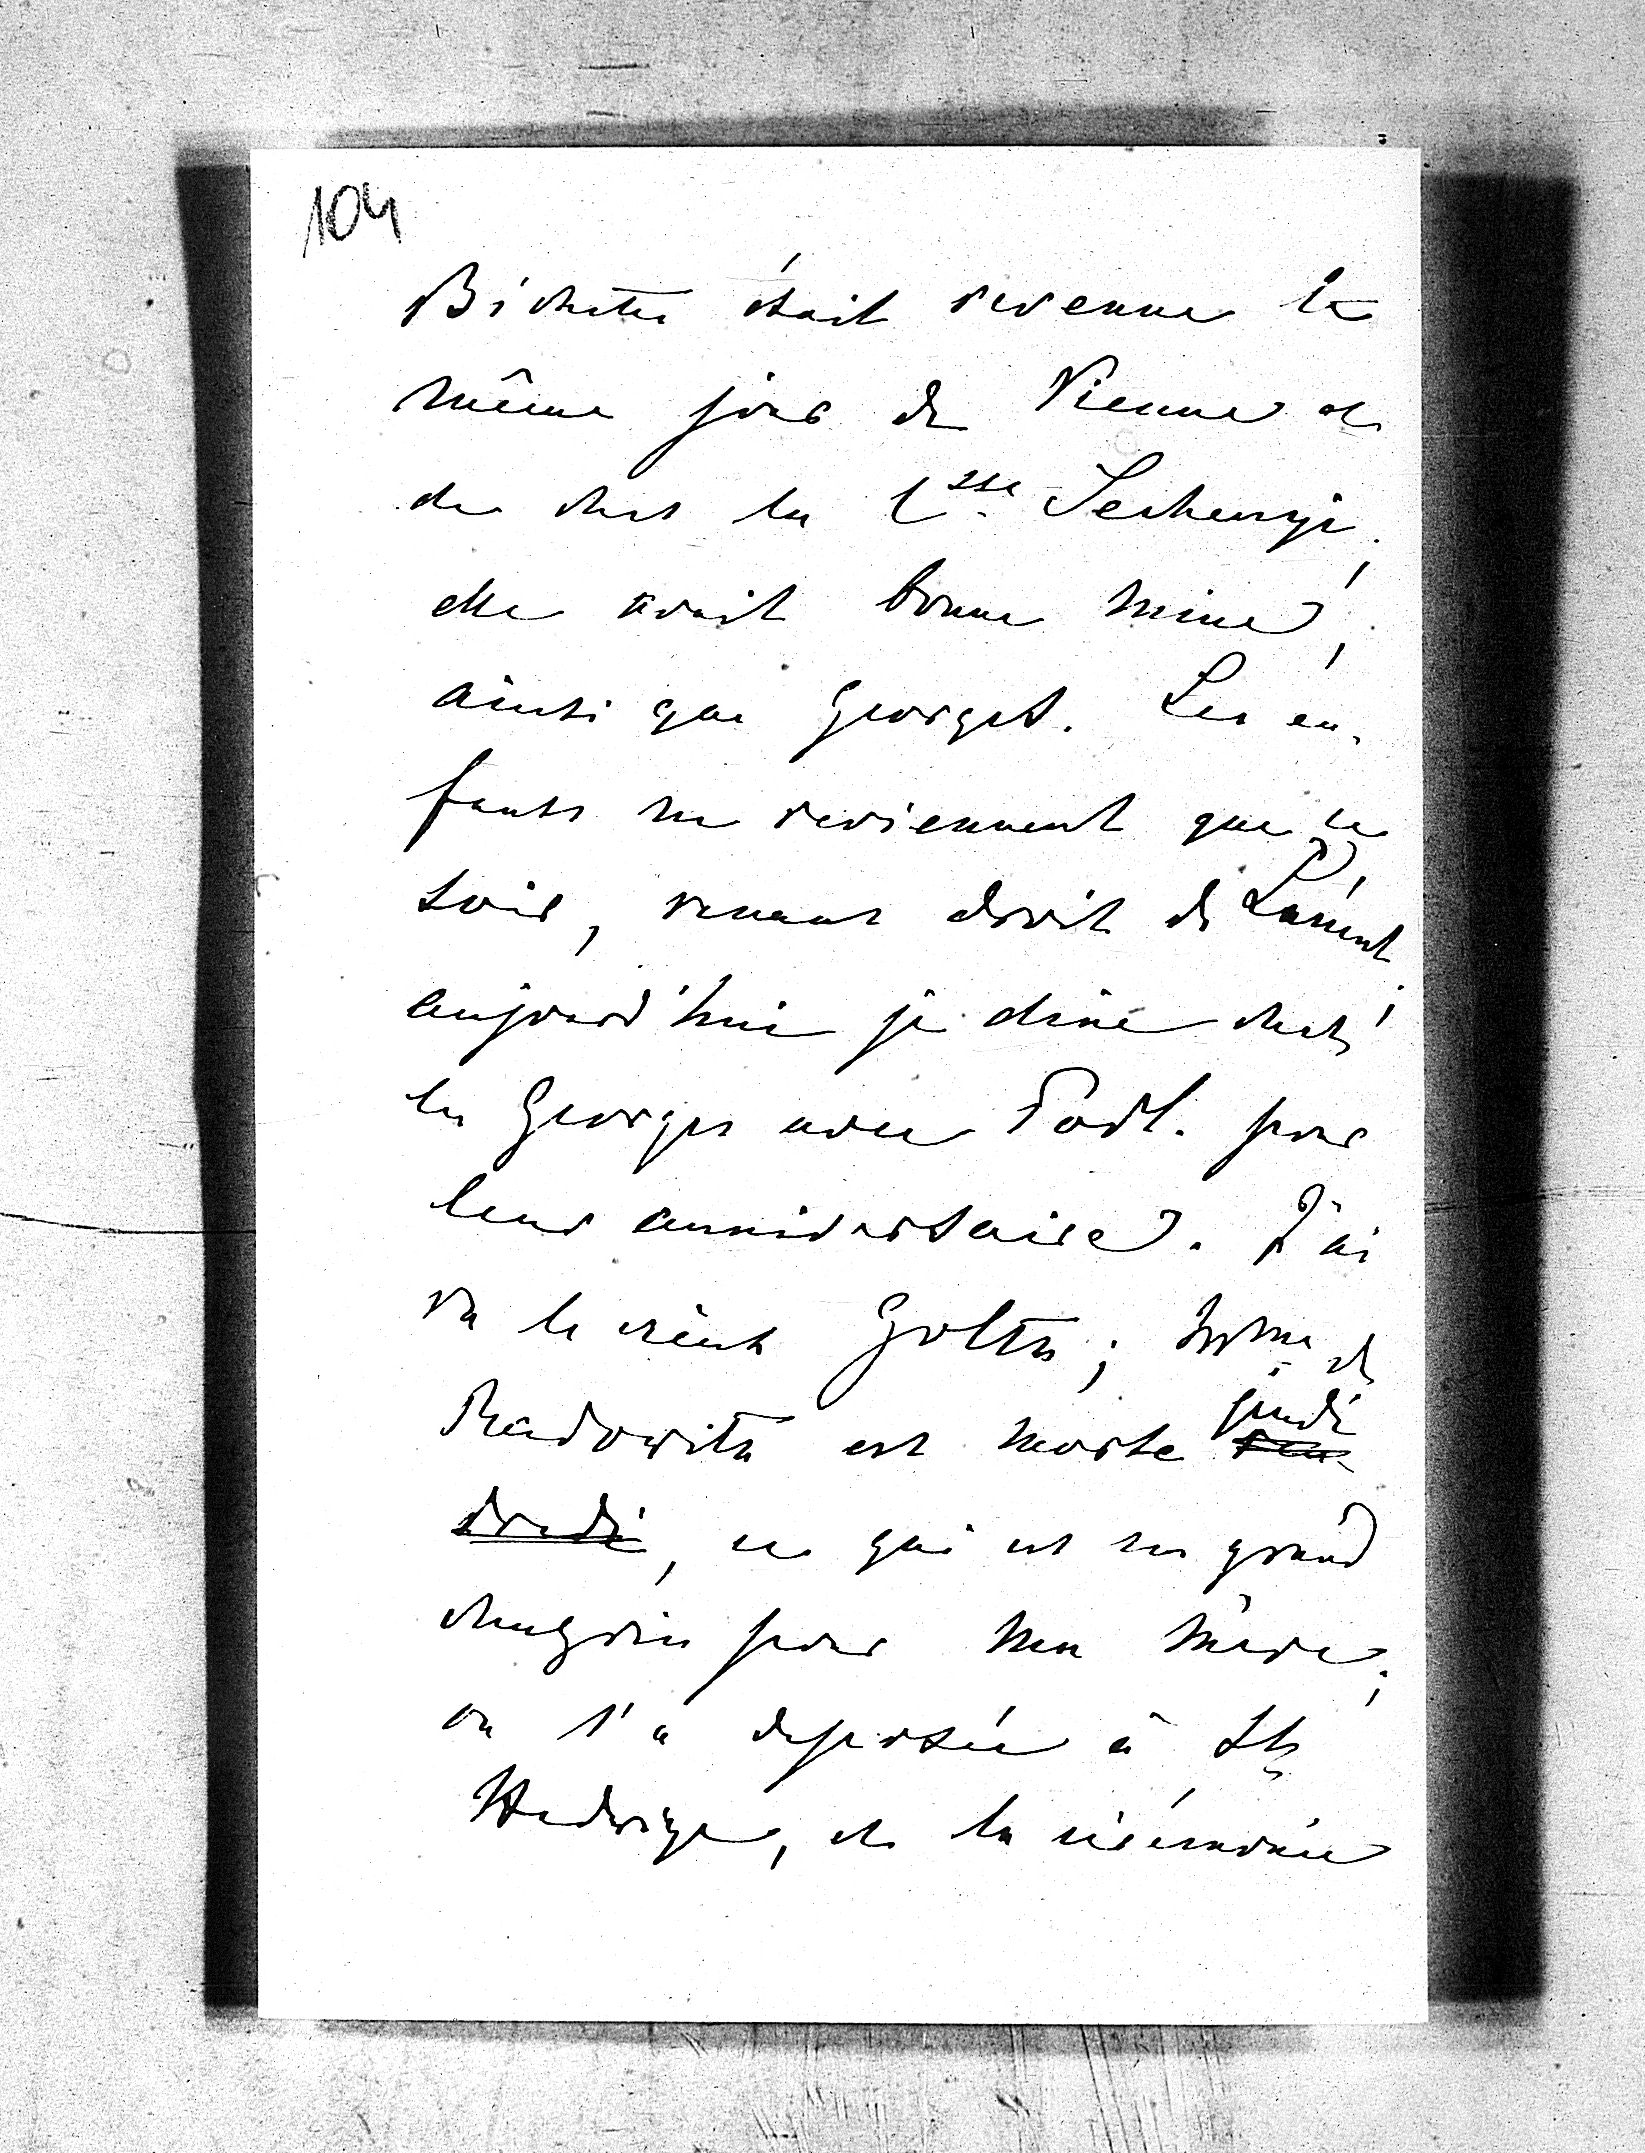 104
Bichette était revenue le
même jour de Vienne et
de chez la Csse Sechenyi;
elle avait bonne mine,
ainsi que Georges. Les en-
fants ne reviennent que ce
soir, venant droit de
aujourd'hui je dine chez
les Georges avec Podl. pour
leur anniversaire. J'ai
vu le vieux Goltz; Mme de
Radowitz est morte jeudi
ven-
dredi, ce qui est un grand
chagrin pour ma mère;
on l'a deposée à Ste
Hedwige, et la cérémonie